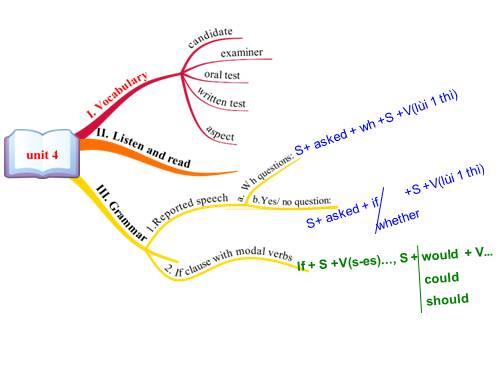 unit 4
I. Vocabulary
candidate
examiner
oral test
written test
aspect
II. Listen and read
III. Grammar
1.Reported speech
a. Wh questions:
S+ asked + wh +S +V(lùi 1 thì)
b.Yes/ no question:
S+ asked + if / +S +V(lùi 1 thì)
whether
2. If clause with modal verbs
If + S +V(s-es)..., S + would + V...
could
should